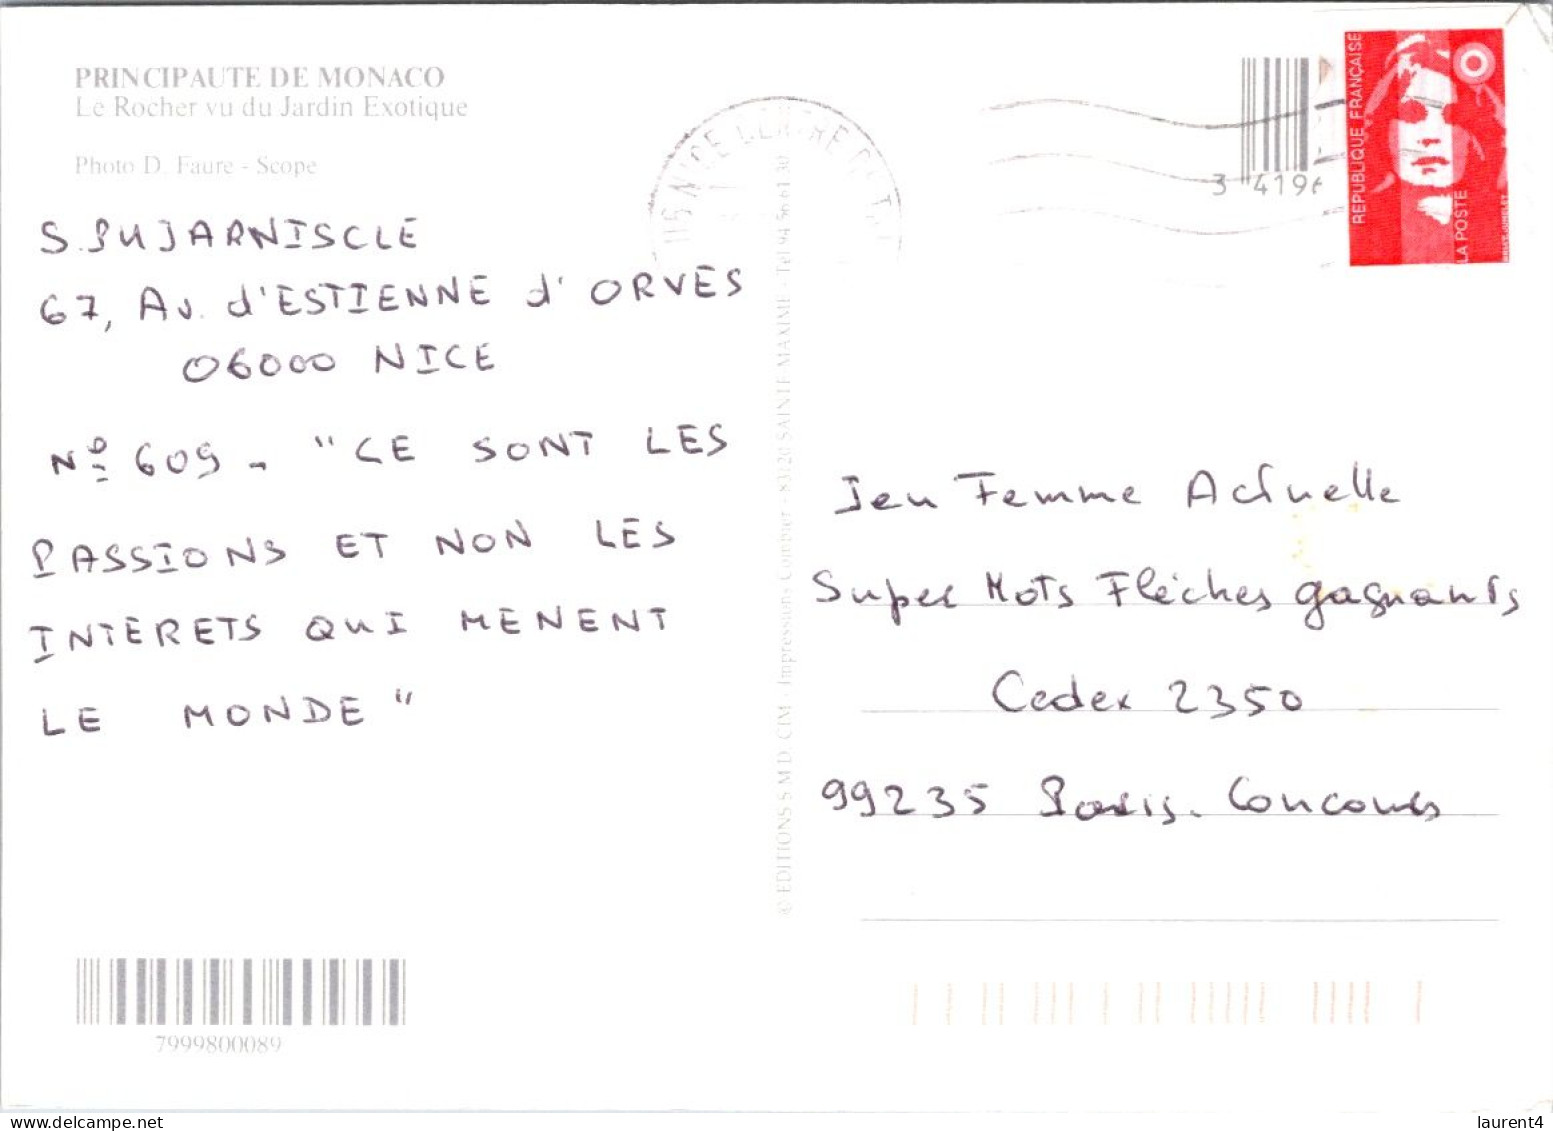 PRINCIPAUTE DE MONACO
Le Rocher vu du Jardin Exotique
Photo D. Faure - Scope
S. PUJARNISCLE
67, Av. d'ESTIENNE d'ORVES
06000 NICE
Nº 609 - "CE SONT LES
PASSIONS ET NON LES
INTERETS QUI MENENT
LE MONDE"
7999800089
© EDITIONS S.M.D. CIM - Impressions Combier - 83120 SAINTE MAXIME - Tel 94 56 61 30
06 NICE CENTRE
3 419
REPUBLIQUE FRANÇAISE
LA POSTE
Jeu Femme Actuelle
Super Mots Fléchés gagnants
Cedex 2350
99235 Paris. Concours
www.delcampe.net
laurent4